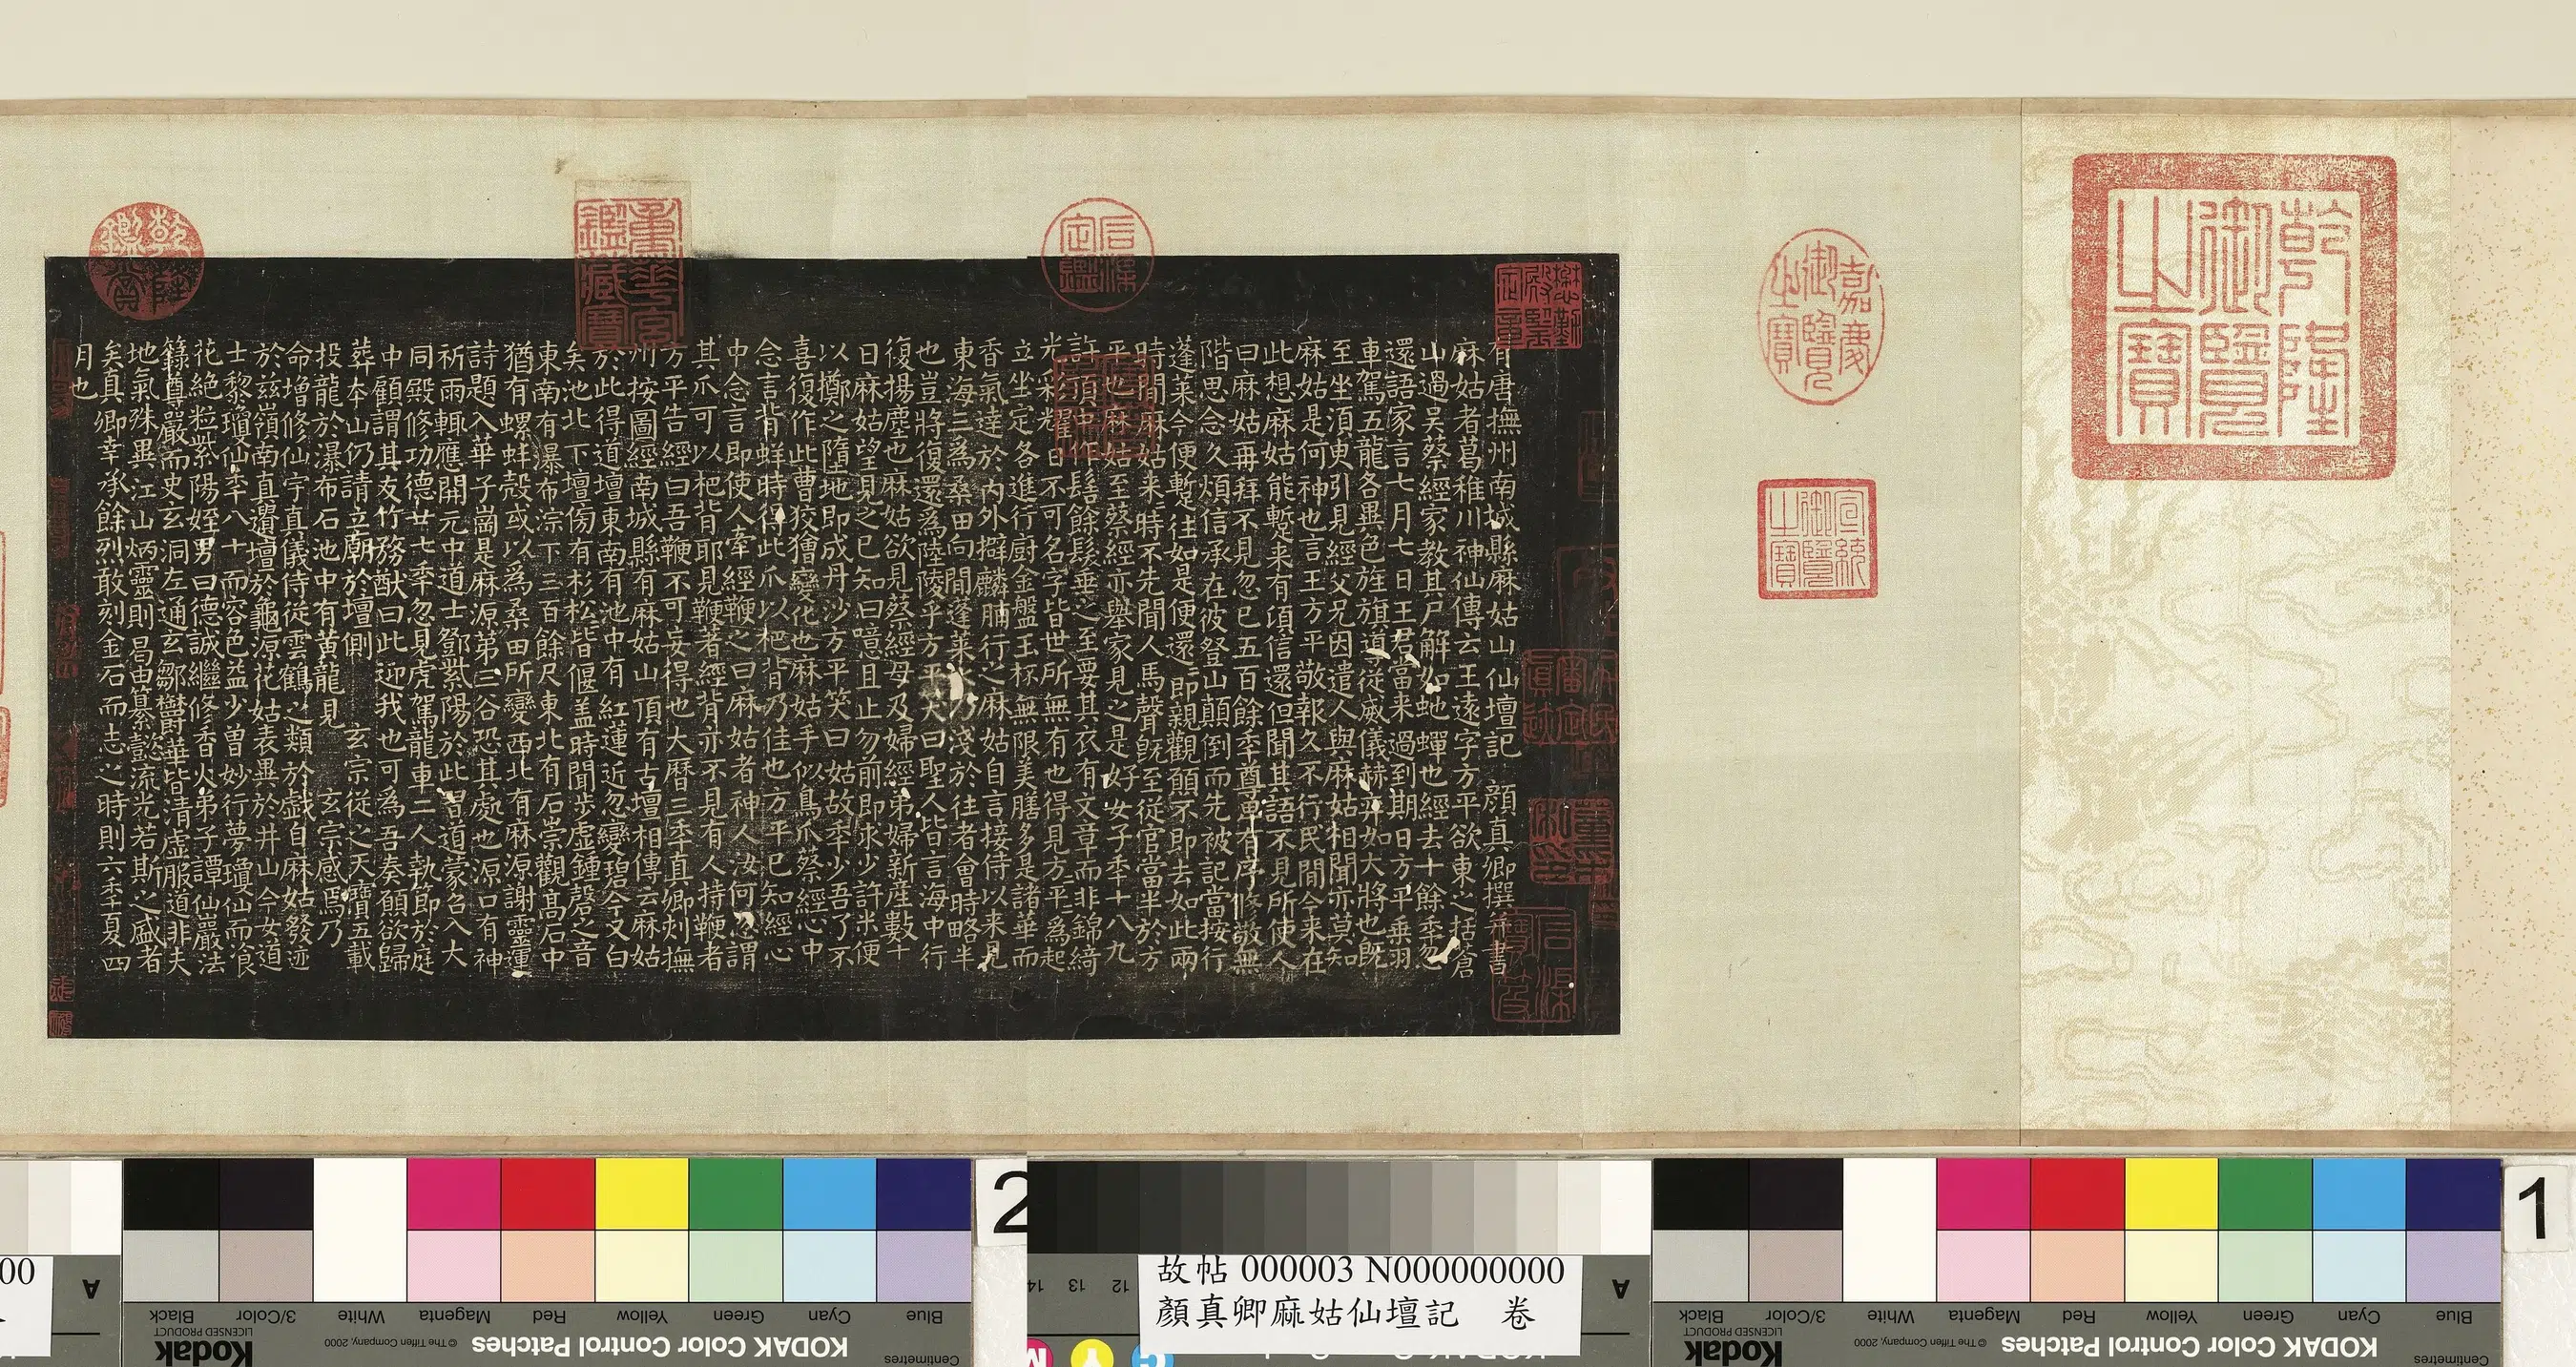 乾隆御覽之寶
嘉慶御覽之寶
宣統御覽之寶
石渠定鑑
重華宮鑑藏寶
乾隆鑑賞
懋勤殿鑒定章
石渠寶笈
有唐撫州南城縣麻姑山仙壇記 顏真卿撰并書
麻姑者葛稚川神仙傳云王遠字方平欲東之括蒼
山過吳蔡經家教其尸解如虵蟬也經去十餘季忽
還語家言七月七日王君當来過到期日方平乘羽
車駕五龍各異色旌旗導從威儀赫弈如大將也旣
至坐須臾引見經父兄因遣人與麻姑相聞亦莫知
麻姑是何神也言王方平敬報久不行民間今来在
此想麻姑能蹔来有頃信還但聞其語不見所使人
曰麻姑再拜不見忽已五百餘季尊卑有序修敬無
階思念久煩信承在彼登山顛倒而先被記當按行
蓬萊今便蹔往如是便還即親觀願不即去如此兩
時間麻姑来時不先聞人馬聲旣至從官當半於方
平也麻姑至蔡經亦舉家見之是好女子季十八九
許頂中作髻餘髮垂之至要其衣有文章而非錦綺
光彩耀日不可名字皆世所無有也得見方平為起
立坐定各進行厨金盤玉杯無限美膳多是諸華而
香氣達於內外擗麟脯行之麻姑自言接侍以来見
東海三為桑田向間蓬萊水乃淺於往者會時略半
也豈將復還為陸陵乎方平笑曰聖人皆言海中行
復揚塵也麻姑欲見蔡經母及婦經弟婦新產數十
日麻姑望見之已知曰噫且止勿前即求少許米便
以擲之墮地即成丹沙方平笑曰姑故季少吾了不
喜復作此曹狡獪變化也麻姑手似鳥爪蔡經心中
念言背蛘時得此爪以杷背乃佳也方平已知經心
中念言即使人牽經鞭之曰麻姑者神人汝何忽謂
其爪可以杷背耶見鞭著經背亦不見有人持鞭者
方平告經曰吾鞭不可妄得也大曆三季真卿刺撫
州按圖經南城縣有麻姑山頂有古壇相傳云麻姑
於此得道壇東南有池中有紅蓮近忽變碧今又白
矣池北下壇傍有杉松皆偃盖時聞步虛鍾磬之音
東南有瀑布淙下三百餘尺東北有石崇觀高石中
猶有螺蚌殼或以為桑田所變西北有麻源謝靈運
詩題入華子崗是麻源第三谷恐其處也源口有神
祈雨輒應開元中道士鄧紫陽於此習道蒙召入大
同殿修功德廿七季忽見虎駕龍車二人執節於庭
中顧謂其友竹務猷曰此迎我也可為吾奏願欲歸
葬本山仍請立廟於壇側 玄宗從之天寶五載
投龍於瀑布石池中有黃龍見 玄宗感焉乃
命增修仙宇真儀侍從雲鶴之類於戲自麻姑發迹
於茲嶺南真遺壇於龜源花姑表異於井山今女道
士黎瓊仙季八十而容色益少曾妙行夢瓊仙而飡
花絕粒紫陽姪男曰德誠繼修香火弟子譚仙巖法
籙尊嚴而史玄洞左通玄鄒鬱華皆清虛服道非夫
地氣殊異江山炳靈則曷由纂懿流光若斯之盛者
矣真卿幸承餘烈敢刻金石而志之時則六季夏四
月也
故帖 000003 N000000000
顏真卿麻姑仙壇記 卷
1
2
00
A
A
12
13
14
Blue
Cyan
Green
Yellow
Red
Magenta
White
3/Color
Black
KODAK Color Control Patches
© The Tiffen Company, 2000
Kodak
LICENSED PRODUCT
Centimetres
Blue
Cyan
Green
Yellow
Red
Magenta
White
3/Color
Black
KODAK Color Control Patches
© The Tiffen Company, 2000
Kodak
LICENSED PRODUCT
Centimetres
M
Y
C